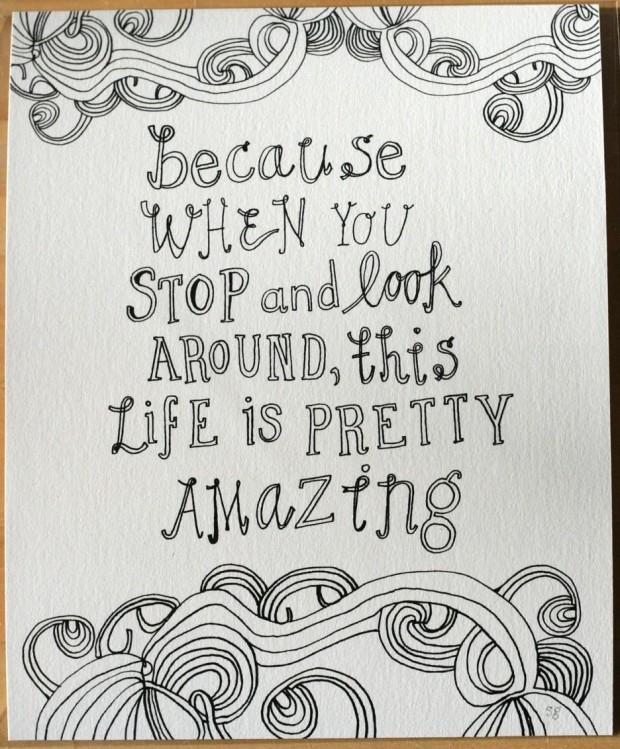 because
WHEN YOU
STOP and look
AROUND, this
LiFE is PRETTY
AMaZing